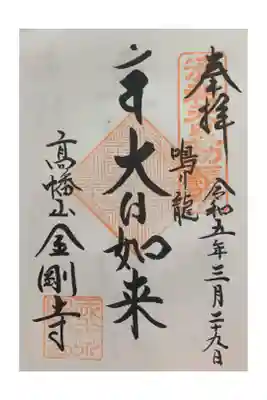 奉拝
令和五年三月二十九日
鳴り龍
大日如来
高幡山金剛寺